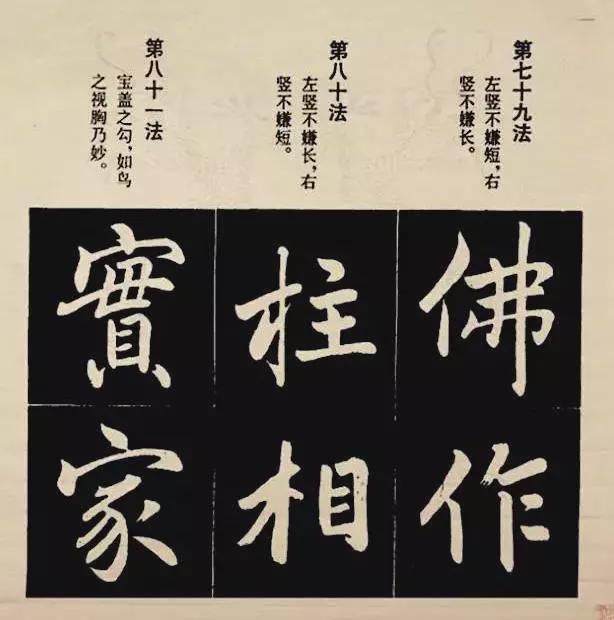 第七十九法
左竖不嫌短，右
竖不嫌长。
佛
作
第八十法
左竖不嫌长，右
竖不嫌短。
柱
相
第八十一法
宝盖之勾，如鸟
之视胸乃妙。
實
家